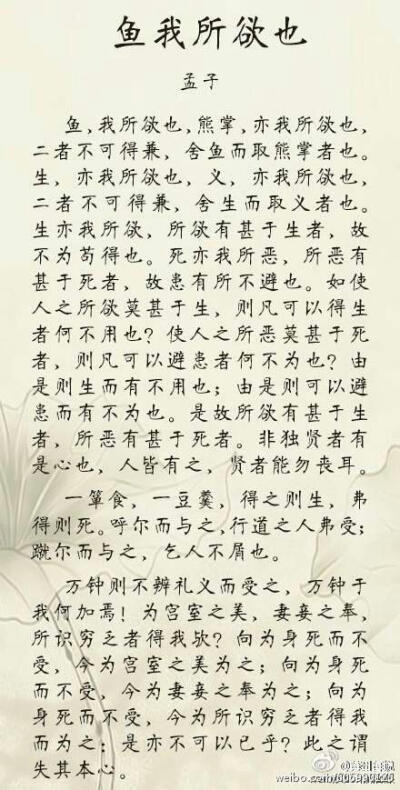 鱼我所欲也
孟子
鱼,我所欲也,熊掌,亦我所欲也,
二者不可得兼,舍鱼而取熊掌者也。
生,亦我所欲也,义,亦我所欲也,
二者不可得兼,舍生而取义者也。
生亦我所欲,所欲有甚于生者,故
不为苟得也。死亦我所恶,所恶有
甚于死者,故患有所不避也。如使
人之所欲莫甚于生,则凡可以得生
者何不用也?使人之所恶莫甚于死
者,则凡可以避患者何不为也?由
是则生而有不用也;由是则可以避
患而有不为也。是故所欲有甚于生
者,所恶有甚于死者。非独贤者有
是心也,人皆有之,贤者能勿丧耳。
一箪食,一豆羹,得之则生,弗
得则死。呼尔而与之,行道之人弗受;
蹴尔而与之,乞人不屑也。
万钟则不辨礼义而受之,万钟于
我何加焉!为宫室之美,妻妾之奉,
所识穷乏者得我欤?向为身死而不
受,今为宫室之美为之;向为身死
而不受,今为妻妾之奉为之;向为
身死而不受,今为所识穷乏者得我
而为之:是亦不可以已乎?此之谓
失其本心。
weibo.com